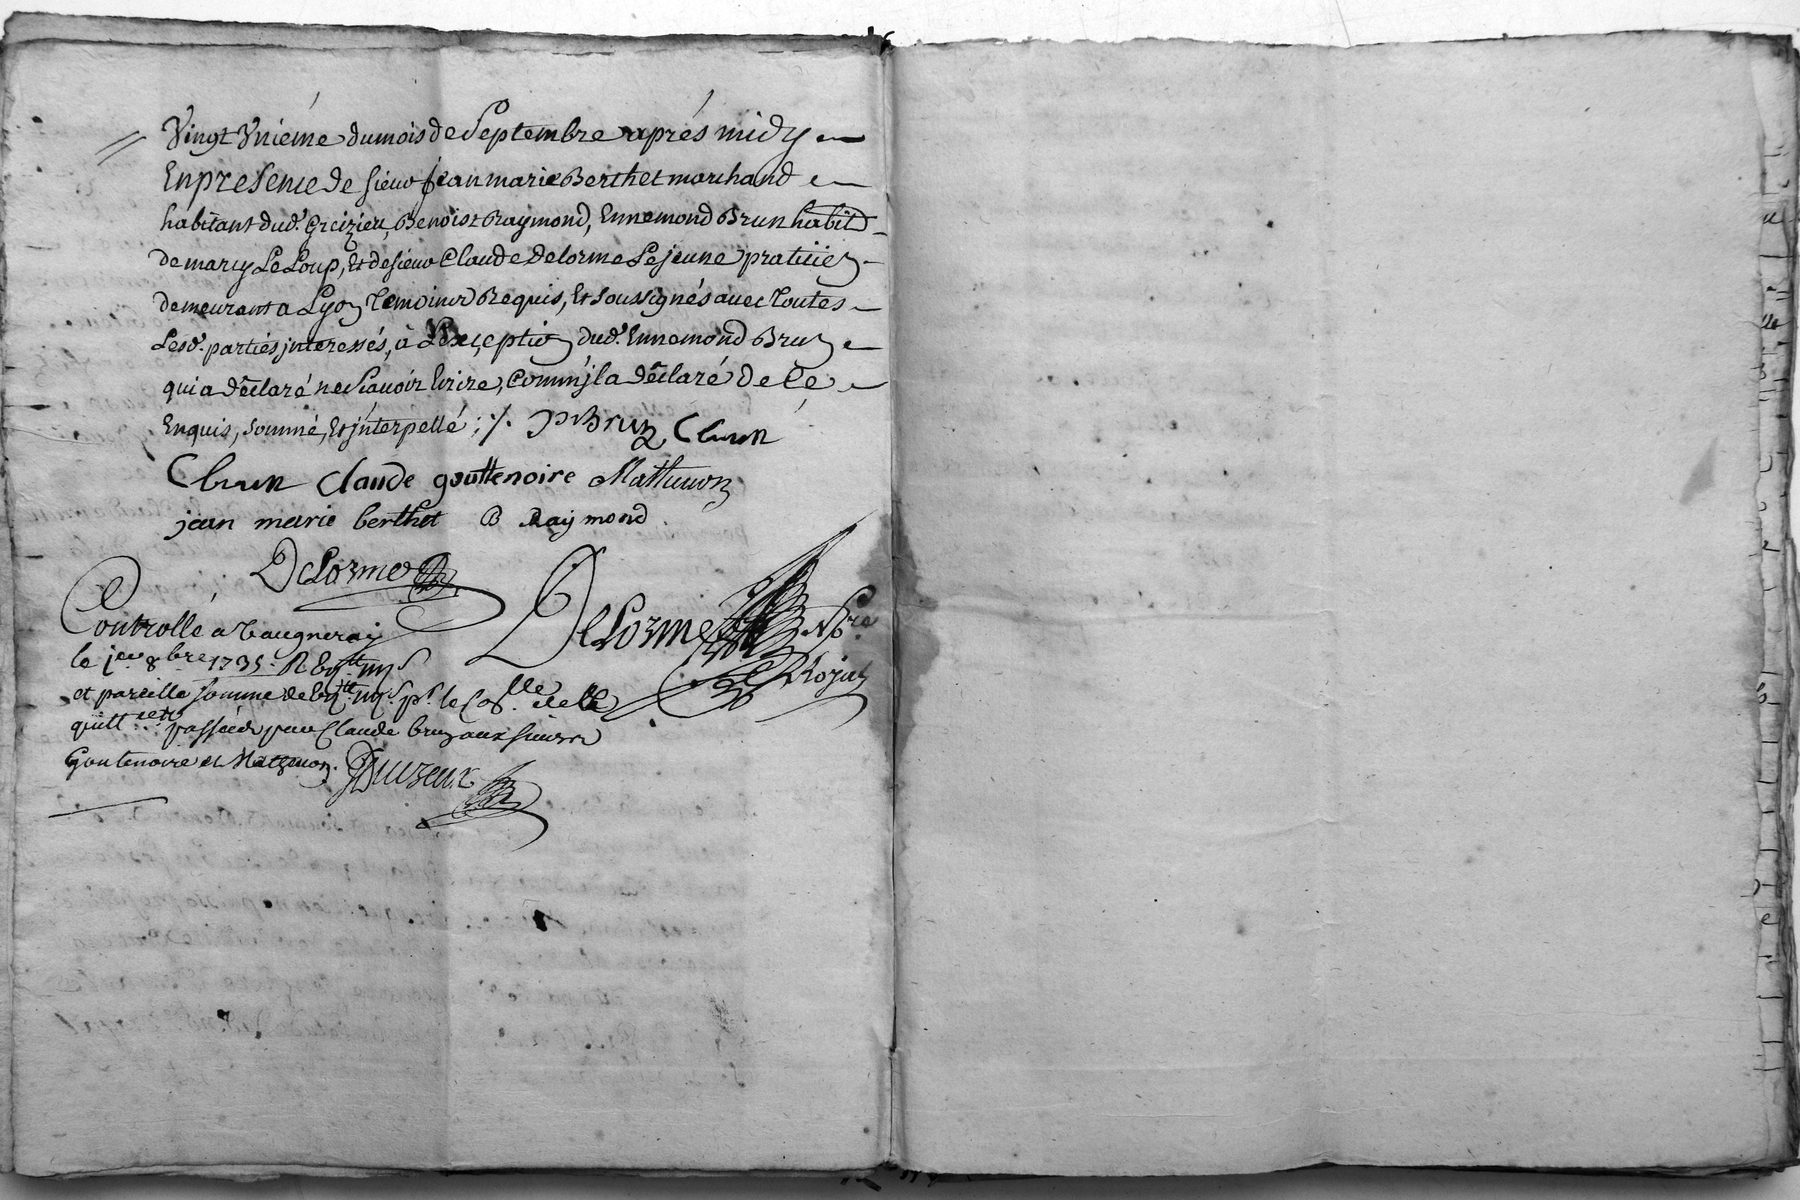 Vingt Unième du mois de Septembre après midy
En presence de sieur jean marie Berthet marchand
habitant dud. Greizieu, Benoist Raymond, Ennemond Brun habit
de marcy Le Loup, Et de sieur Claude Delorme Le jeune praticien
demeurant a Lyon Temoins Requis, Et soussignés avec Toutes
Lesd. parties interessés, à L'exception dud. Ennemond Brun
qui a déclaré ne sçavoir Ecrire, Comm'il a déclaré de Ce
Enquis, sommé, Et interpellé ; /. Brun C brun
C brun Claude gouttenoire Mathevon
jean marie berthet B Raymond
DeLorme
DeLorme Nore
Royal
Controllé a Vaugneray
le jer 8bre 1735. R
et pareille somme de
quitt passées par Claude brun aux sieurs
Goutenoire et Mathevon.